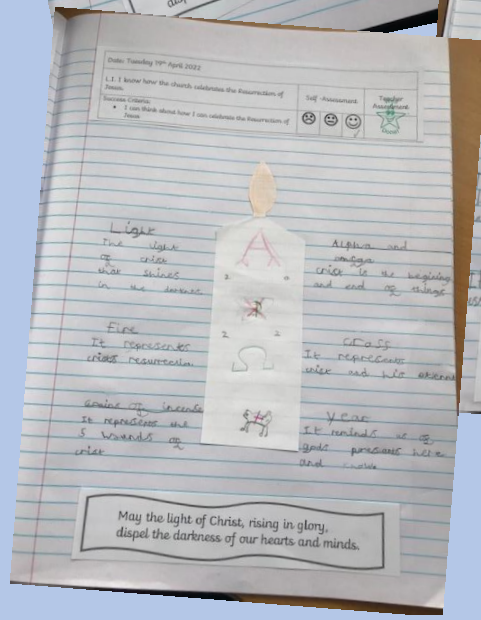 Date: Tuesday 19th April 2022
L.I. I know how the church celebrates the Resurrection of
Jesus.
Success Criteria:
I can think about how I can celebrate the Resurrection of
Jesus
Self -Assessment
Teacher
Assessment
Light
The light
of crist
that shines
in the
Fire
It represents
crists
grains of incense
It represents the
5 wounds of
crist
A
2 0
2 2
Ω
Alpha and
omega
crist is the begining
and end of things
Cross
It represents
crist and his
year
It reminds us of
gods here
and
May the light of Christ, rising in glory,
dispel the darkness of our hearts and minds.